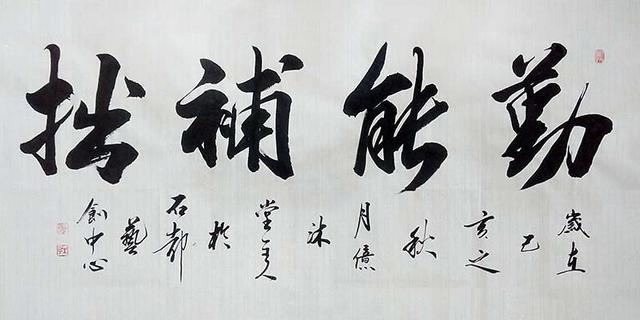 勤能補拙
歲在己亥之秋月億沐堂主人於石都藝創中心